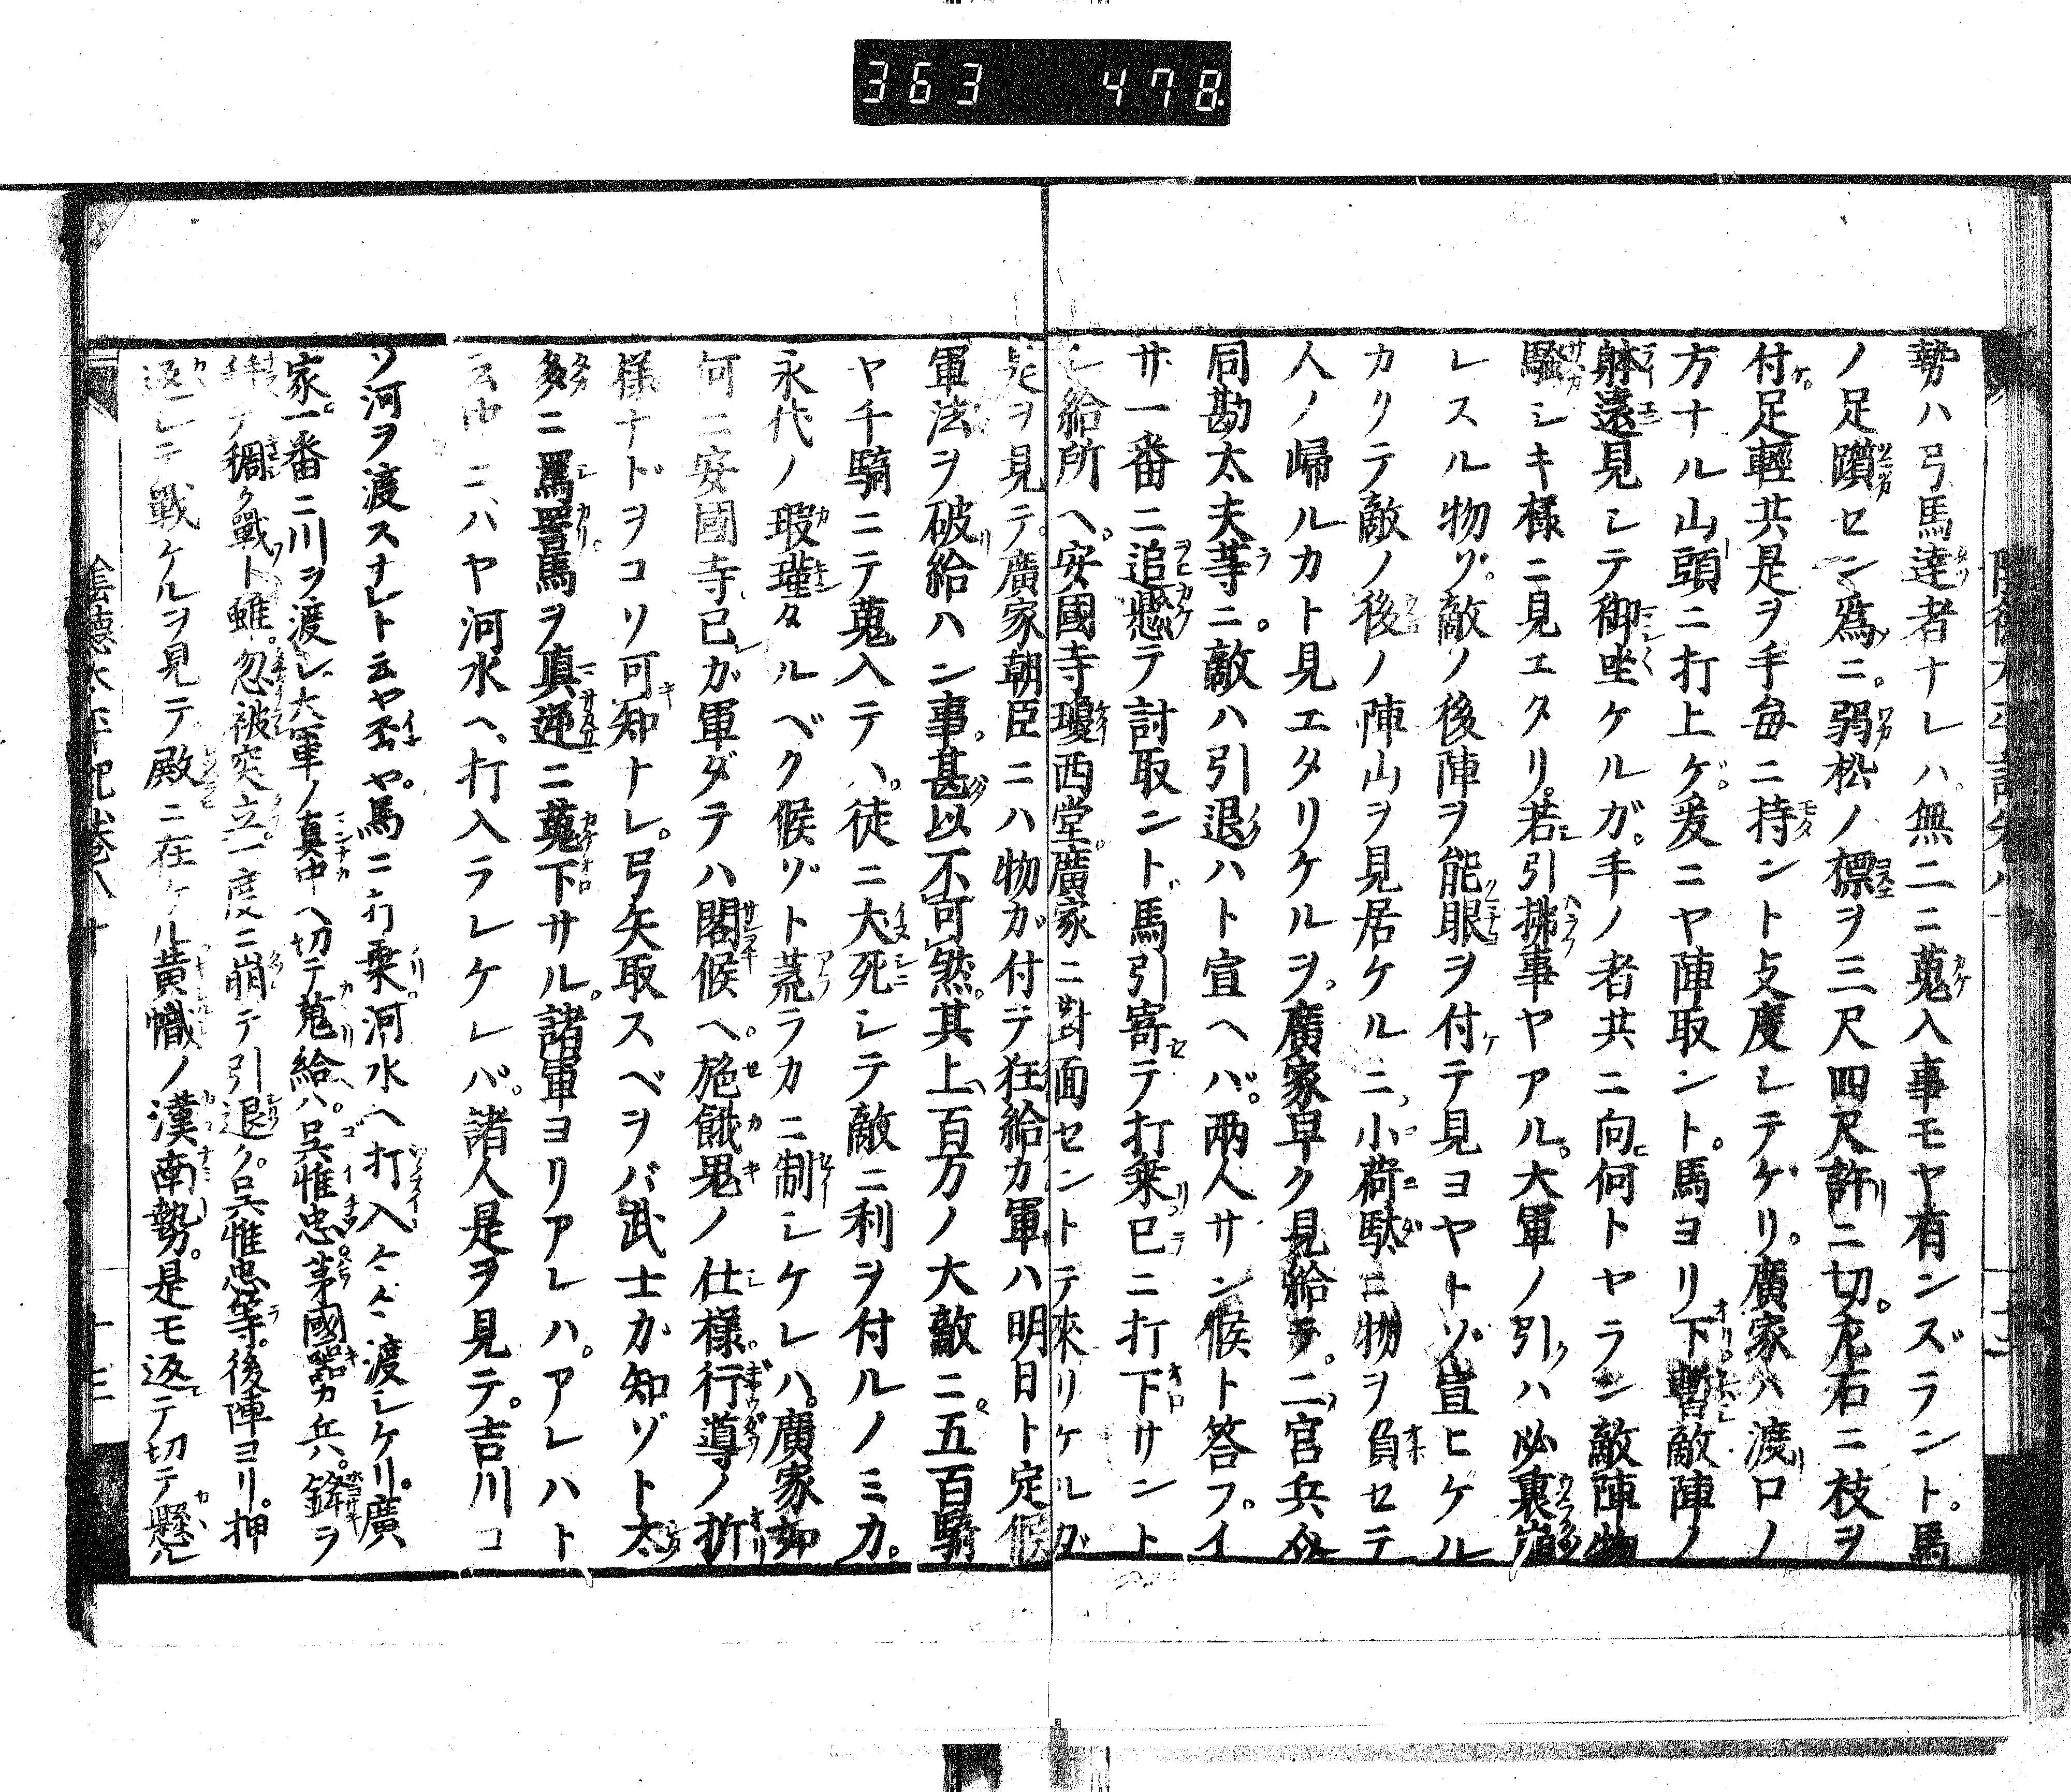 363 478
勢ハ弓馬達者ナレハ無二ニ蒐入事モヤ有ンズラント。馬
ノ足躓セン爲ニ。弱松ノ標ヲ三尺四尺許ニ切。尨石ニ枝ヲ
付足輕共是ヲ手毎ニ持ント支度レテゲリ。廣家ハ渡口ノ
方ナル山頭ニ打上ゲ。爰ニヤ陣取ント。馬ヨリ下暫敵陣ノ
躰遠見レテ御坐ケルガ。手ノ者共ニ向何トヤラン敵陣物
騒レキ様ニ見エタリ。若引拂事ヤアル。大軍ノ引ハ必裏崩
レスル物ゾ。敵ノ後陣ヲ能眼ヲ付テ見ヨヤトゾ宣ヒケル
カリテ敵ノ後ノ陣山ヲ見居ケルニ、小荷駄ニ物ヲ負セテ
人ノ帰ルカト見エタリケルヲ。廣家早ク見給テ。二官兵
同勘太夫等ニ。敵ハ引退ハト宣ヘバ。兩人サン候ト答フ。イ
ザ一番ニ追懸テ討取ント馬引寄テ打乗已ニ打下サント
レ給所ヘ。安國寺瓊西堂。廣家ニ對面セントテ來リケルダ
是ヲ見テ。廣家朝臣ニハ物ガ付テ狂給カ軍ハ明日ト定候
軍法ヲ破給ハン事。甚以不可然。其上百万ノ大敵ニ。五百騎
ヤ千騎ニテ蒐入テハ。徒ニ大死レテ敵ニ利ヲ付ルノミカ。
永代ノ瑕瑾タルベク候ゾト荒ラカニ制レケレハ。廣家如
何ニ安國寺己ガ軍ダテハ閣候ヘ。施餓鬼ノ仕様。行導ノ折
様ナドヲコソ可知ナレ。弓矢取スベヲバ武士カ知ゾト太
多ニ罵詈馬ヲ真逆ニ蒐下サル。諸軍ヨリアレハ。アレハト
云中ニハヤ河水ヘ打入ラレケレバ。諸人是ヲ見テ。吉川コ
ソ河ヲ渡スナレト云ヤ否ヤ。馬ニ打乗河水ヘ打入々々渡レケリ。廣
家一番ニ川ヲ渡レ。大軍ノ真中ヘ切テ蒐給ハ。呉惟忠茅國器カ兵。鉾ヲ
テ稠ク戰ト雖。忽被突立。一度ニ崩テ引退ク。呉惟忠等。後陣ヨリ。押
返レテ戰ケルヲ見テ。殿ニ在ケル黄幟ノ漢南勢。是モ返テ切テ懸ル
陰徳太平記巻八十 十三